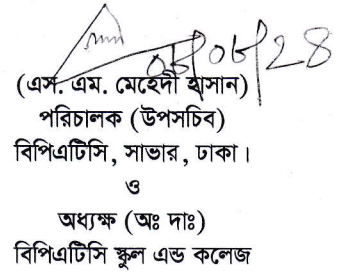 ০৮/০৮/২৪
(এস. এম. মেহেদী হাসান)
পরিচালক (উপসচিব)
বিপিএটিসি, সাভার, ঢাকা।
ও
অধ্যক্ষ (অঃ দাঃ)
বিপিএটিসি স্কুল এন্ড কলেজ